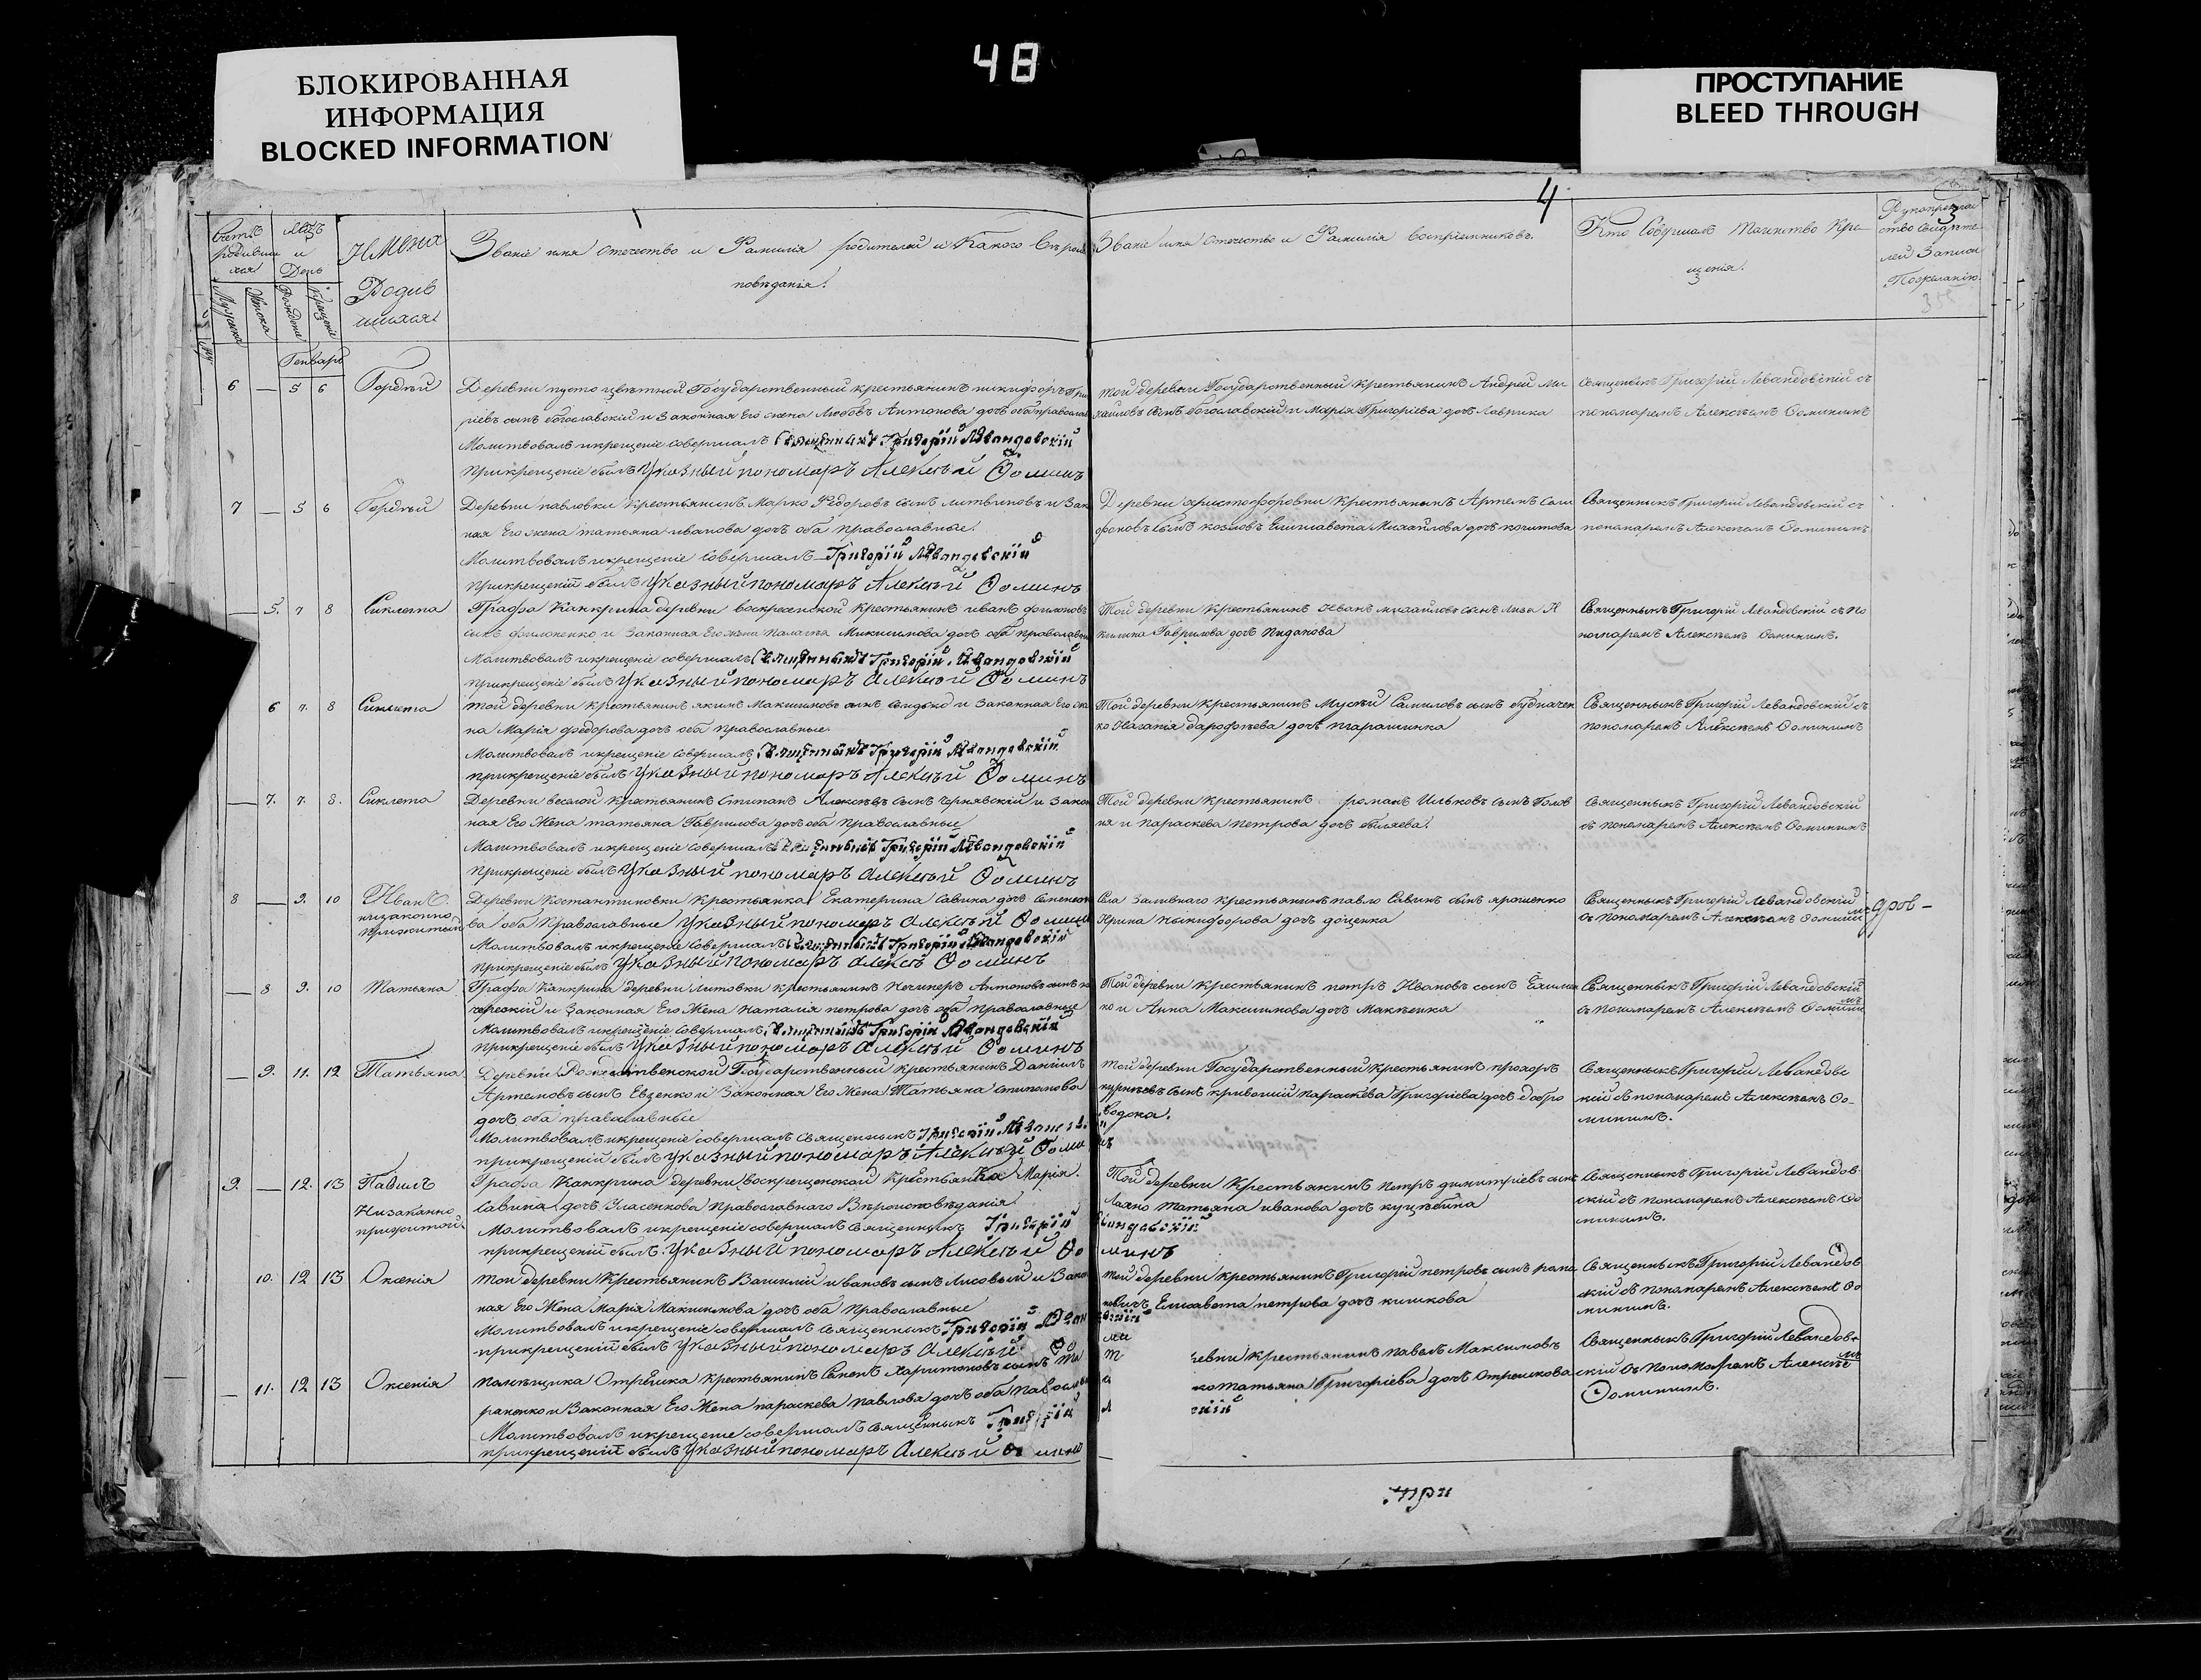 48
БЛОКИРОВАННАЯ
ИНФОРМАЦИЯ
BLOCKED INFORMATION
ПРОСТУПАНИЕ
BLEED THROUGH
4
Званіе имя отечество и Фамилія родителей и Какого Вѣроис
повѣданія.
Званіе имя отечество и Фамилія воспріемниковъ.
Кто Совершалъ Таинство Кре
щенія.
Генварь
6 — 5 6 Гордѣй
Деревни пусто цвѣтной Государственный крестьянинъ никифоръ Гри
ріевъ сынъ богославскій и Законная Его жена Любовь Антонова дочь оба православ
Молитвовалъ икрещеніе совершалъ Священникъ Григорій Левандовскій
Прикрещеніе былъ Указный пономарь Алексѣй Ѳоминъ
той деревни Государственный крестьянинъ Андрей Ми
хаиловъ сынъ богославскій и Марія Григоріева дочь Лаврика
Священыкъ Григорій Левандовскій съ
пономаремъ Алексѣемъ Ѳоминимъ
7 — 5 6 Гордѣй
Деревни павловки Крестьянинъ Марко Ѳедоровъ сынъ литвиновъ и Зак
ная Его жена татьяна иванова дочь оба православные.
Молитвовалъ икрещеніе совершалъ Григорій Левандовскій
Прикрещеніи былъ Указный пономарь Алексѣй Ѳоминъ
Деревни христофоровки Крестьянинъ Артемъ Сали
фоновъ сынъ козловъ Елисавета Михайлова дочь
Священыкъ Григорій Левандовскій съ
пономаремъ Алексѣемъ Ѳоминимъ
— 5. 7 8 Сиклета
Графа Канкрина деревни воскресенской крестьянинъ иванъ филоновъ
сынъ филоненко и Законная Его жена Палагея Максимова дочь оба православн
Молитвовалъ икрещеніе совершалъ Священникъ Григорій Левандовскій
прикрещеніе былъ Указный пономарь Алексѣй Ѳоминъ
Той деревни Крестьянинъ Иванъ михайловъ сынъ
килина Гаврилова дочь Пиданова
Священныкъ Григорій Левандовскій съ по
номаремъ Алексѣемъ Ѳоминимъ.
6 7. 8 Сиклета
той деревни Крестьянинъ якимъ Максимовъ сынъ и Законная Его же
на Марія федорова дочь оба православные.
Молитвовалъ икрещеніе совершалъ Священникъ Григорій Левандовскій
прикрещеніе былъ Указный пономарь Алексѣй Ѳоминъ
Той деревни Крестьянинъ Мусѣй Самиловъ сынъ
ко Наталія дарофѣева дочь
Священныкъ Григорій Левандовскій съ
пономаремъ Алексѣемъ Ѳоминимъ
— 7. 7. 8. Сиклета
Деревни веселой Крестьянинъ Стипанъ Алексѣевъ сынъ Чернявскій и Закон
ная Его Жена татьяна Гаврилова дочь оба Православные
Молитвовалъ икрещеніе совершалъ Священникъ Григорій Левандовскій
Прикрещеніе былъ Указный пономарь Алексѣй Ѳоминъ
Той деревни Крестьянинъ романъ Ильковъ сынъ Голов
ня и параскева петрова дочь бѣляева.
Священныкъ Григорій Левандовскій
съ пономаремъ Алексѣемъ Ѳоминимъ
8 — 9. 10 Иванъ.
низаконно
прижитый
Деревни Костантиновки Крестьянка Екатерина Савина дочь
ва оба Православные Указный пономарь Алексѣй Ѳоминъ
Молитвовалъ икрещеніе совершалъ Священникъ Григорій Левандовскій
прикрещеніе былъ Указный пономарь Алексѣй Ѳоминъ
Села Заливнаго Крестьянинъ павло Савинъ сынъ ярошенко
Ирина Никифорова дочь доценка
Священныкъ Григорій Левандовскій
съ пономаремъ Алексѣемъ Ѳоминимъ
— 8 9. 10 Татьяна
Графа Канкрина деревни Литовки Крестьянинъ Антоновъ сынъ
и Законная Его Жена Наталія петрова дочь оба православные
Молитвовалъ икрещеніе совершалъ Священникъ Григорій Левандовскій
Прикрещеніе былъ Указный пономарь Алексѣй Ѳоминъ
Той деревни Крестьянинъ петръ Ивановъ сынъ
ко и Анна Максимова дочь Макѣенка
Священныкъ Григорій Левандовскій
съ пономаремъ Алексѣемъ Ѳоминимъ
— 9. 11. 12 Татьяна
Деревни Рождественской Государственный крестьянинъ Даніилъ
Артемовъ сынъ Евзенко и Законная Его Жена Татьяна Стипанова
дочь оба православные
Молитвовалъ икрещеніе совершалъ Священныкъ Григорій Левандовскій
прикрещеніи былъ Указный пономарь Алексѣй Ѳоминъ
той деревни Государственный Крестьянинъ прохоръ
сынъ кривошій параскева Григоріева дочь добро
водока.
Священныкъ Григорій Левандовс
кій съ пономаремъ Алексѣемъ Ѳо-
минимъ.
9. — 12. 13 Павилъ
Низаконно
прижитой
Графа Канкрина деревни воскрещенской Крестьянка Марія
Савина дочь Уласенкова Православнаго Вѣроисповѣданія
Молитвовалъ икрещеніе совершалъ Священныкъ Григорій Левандовскій
прикрещеніи былъ Указный пономарь Алексѣй Ѳоминъ
Той деревни Крестьянинъ петръ димитріевъ сынъ
Лаяко татьяна иванова дочь
Священныкъ Григорій Левандов
скій съ пономаремъ Алексѣемъ Ѳо
минимъ.
10. 12 13 Оксенія
той деревни Крестьянинъ Василій ивановъ сынъ Лисовый и Зако
ная Его Жена Марія Максимова дочь оба Православные
Молитвовалъ икрещеніе совершалъ Священныкъ Григорій Левандовскій
прикрещеніи былъ Указный пономарь Алексѣй Ѳоминъ
той деревни крестьянинъ Григорій петровъ сынъ рома
новичъ Елисавета петрова дочь кишкова
Священныкъ Григорій Левандов
скій съ пономаремъ Алексѣемъ Ѳо
минимъ.
— 11. 12 13 Оксенія
Помѣщика Отрешка Крестьянинъ Семенъ Харитоновъ сынъ Та
раненко и Законная Его Жена параскева павлова дочь оба
Молитвовалъ икрещеніе совершалъ Священныкъ Григорій
прикрещеніи былъ Указный пономарь Алексѣй Ѳоминъ
ревни Крестьянинъ павелъ Максимовъ
ко татьяна Григоріева дочь Отрешкова
Священныкъ Григорій Левандов
скій съ пономаремъ Алексѣе
Ѳоминимъ.